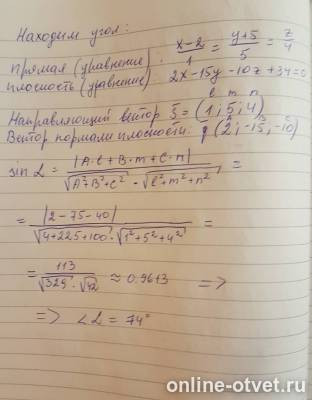 Находим угол:
Прямая (уравнение): x-2/1 = y+5/5 = z/4
плоскость (уравнение): 2x-15y-10z+34=0
l m n
Направляющий вектор S = (1; 5; 4)
A B C
Вектор нормали плоскости: q (2; -15; -10)
sin L = |A·l+B·m+C·n| / √A²+B²+C² · √l²+m²+n² =
= |2-75-40| / √4+225+100 · √1²+5²+4² =
= 113 / √329 · √42 ≈ 0.9613 =>
=> <L = 74°
online-otvet.ru